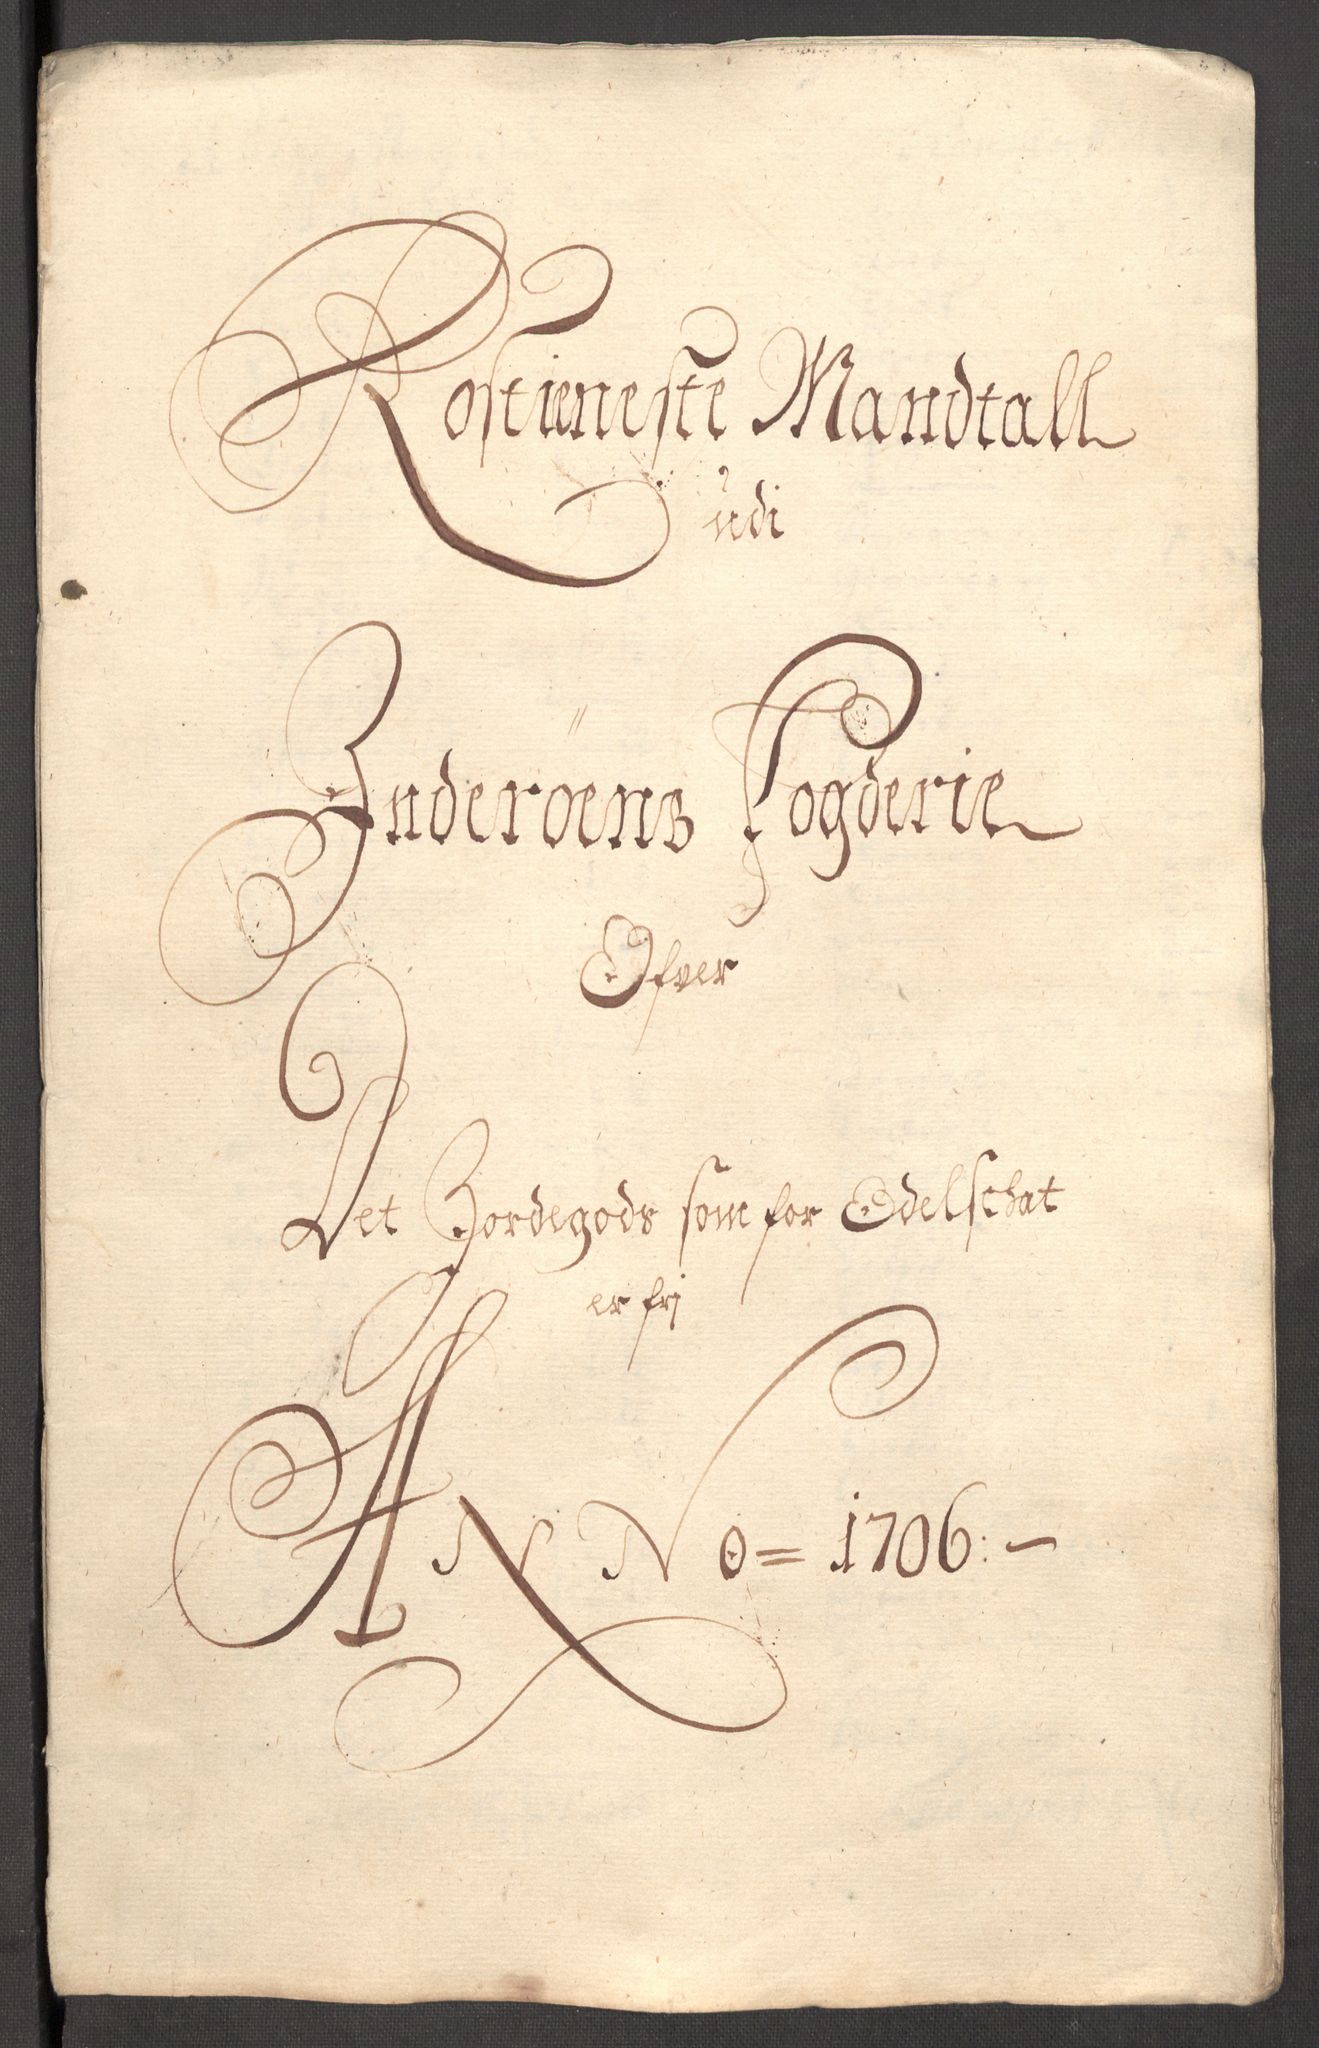 Rostieneste Mandtall
udi
Inderöens Fogderie
Ofver
Det Jordegods som for Odelschat
er frj
ANNo = 1706: -